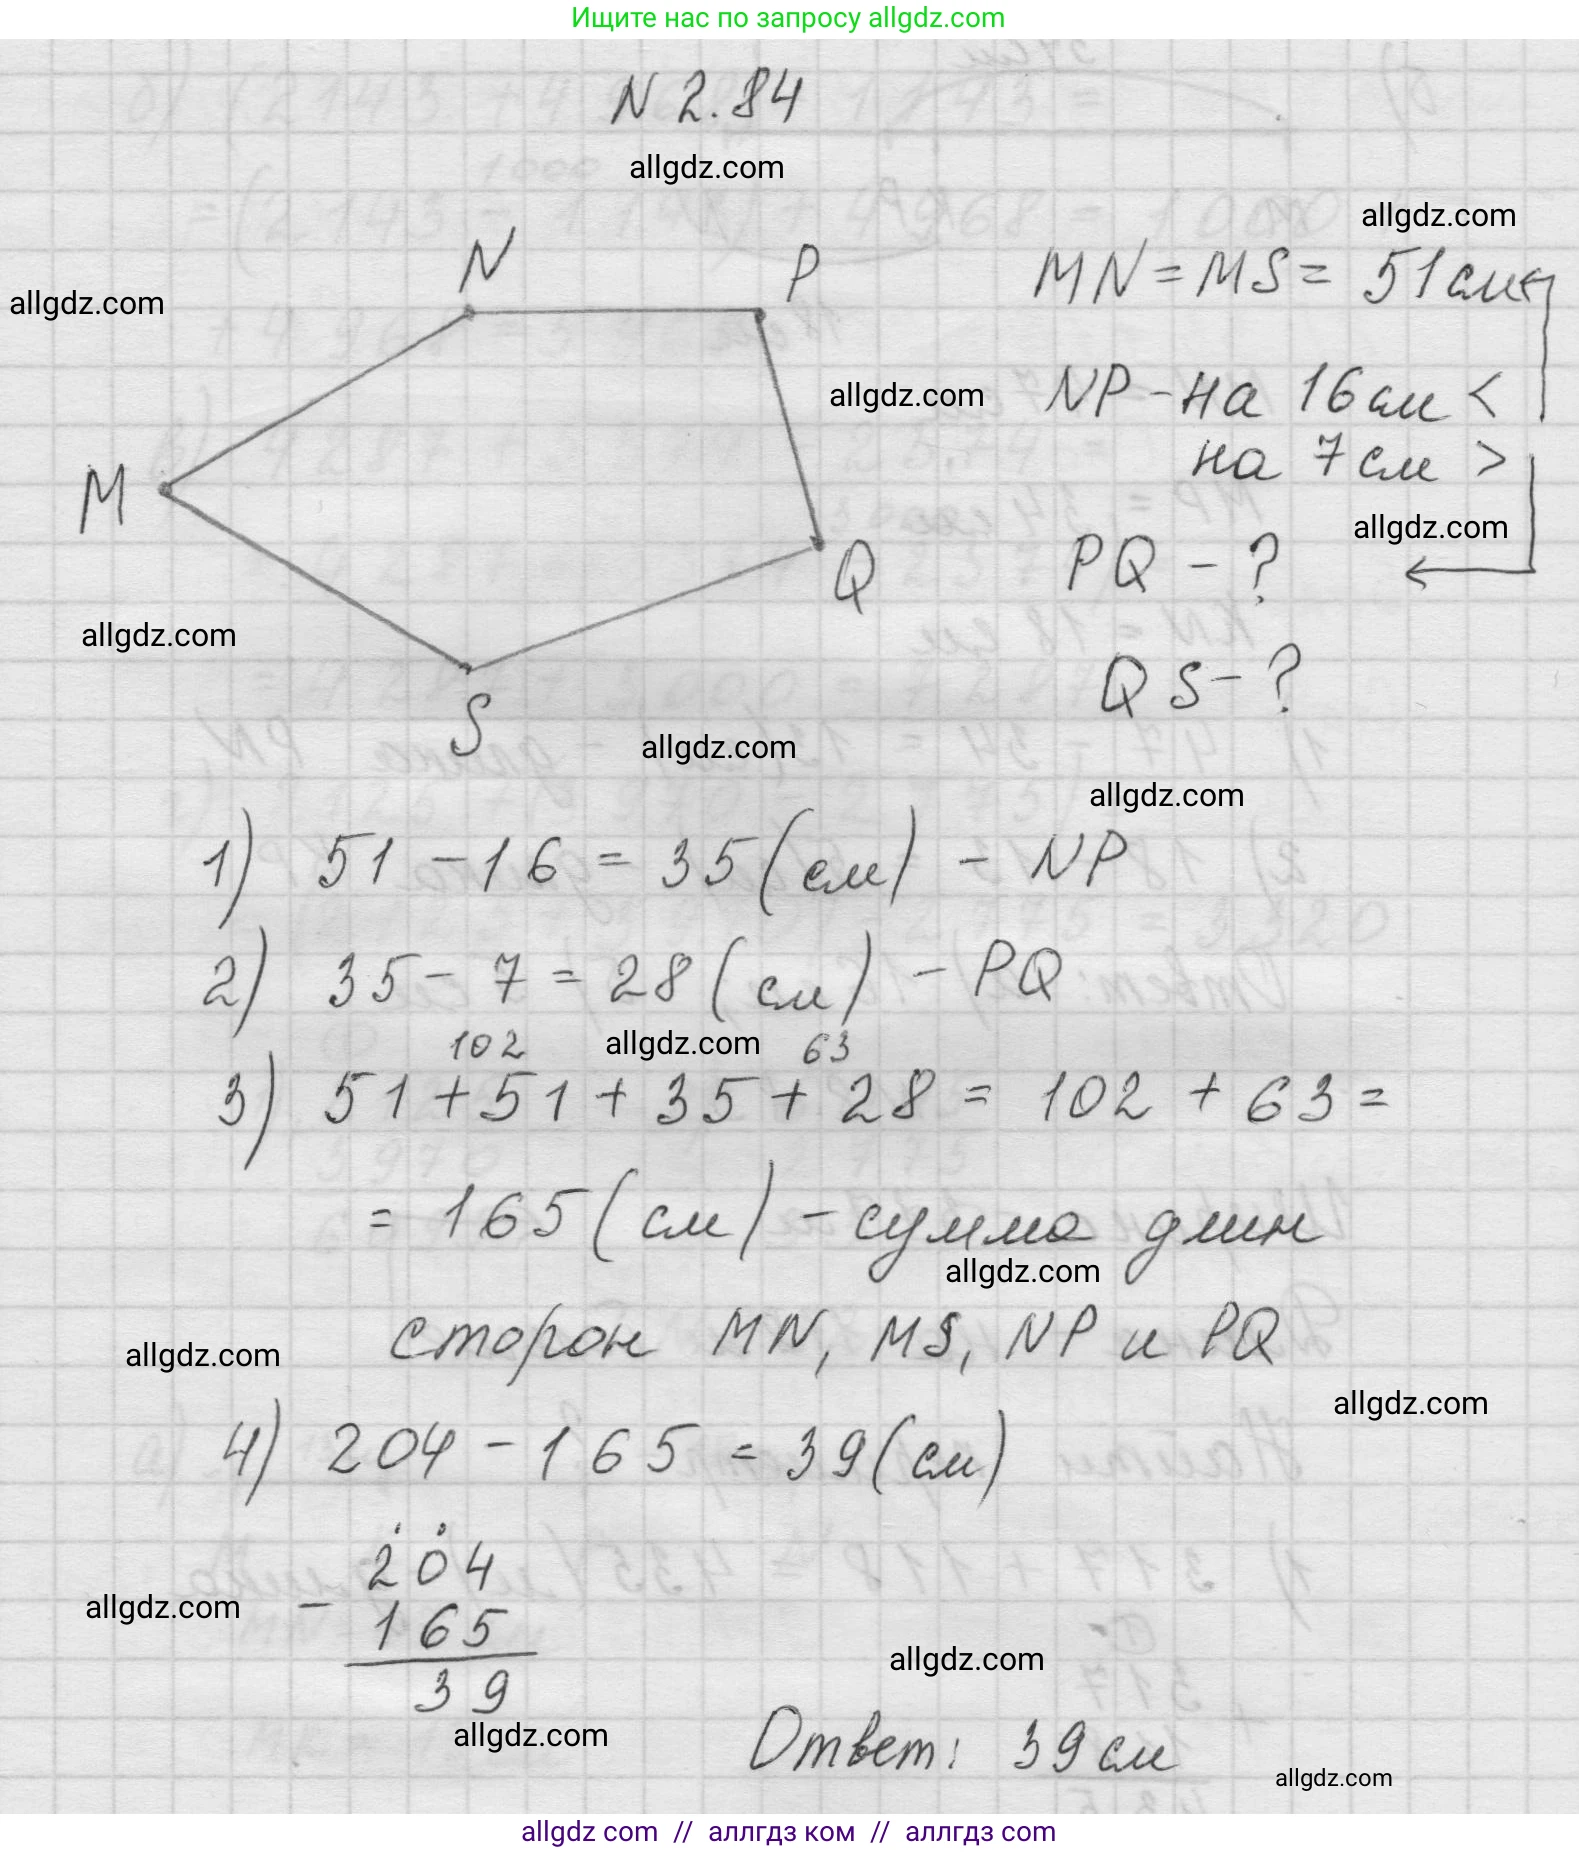 Ищите нас по запросу allgdz.com
N 2.84
allgdz.com
allgdz.com
N
P
allgdz.com
MN = MS = 51 см
allgdz.com
NP - на 16 см <
на 7 см >
M
allgdz.com
PQ - ?
Q
allgdz.com
QS - ?
S
allgdz.com
allgdz.com
1) 51 - 16 = 35 (см) - NP
2) 35 - 7 = 28 (см) - PQ
102 allgdz.com 63
3) 51 + 51 + 35 + 28 = 102 + 63 =
= 165 (см) - сумма длин
allgdz.com
сторон MN, MS, NP и PQ
allgdz.com
allgdz.com
4) 204 - 165 = 39 (см)
204
allgdz.com
- 165
39
allgdz.com
allgdz.com
Ответ: 39 см
allgdz.com
allgdz com // аллгдз ком // аллгдз.com